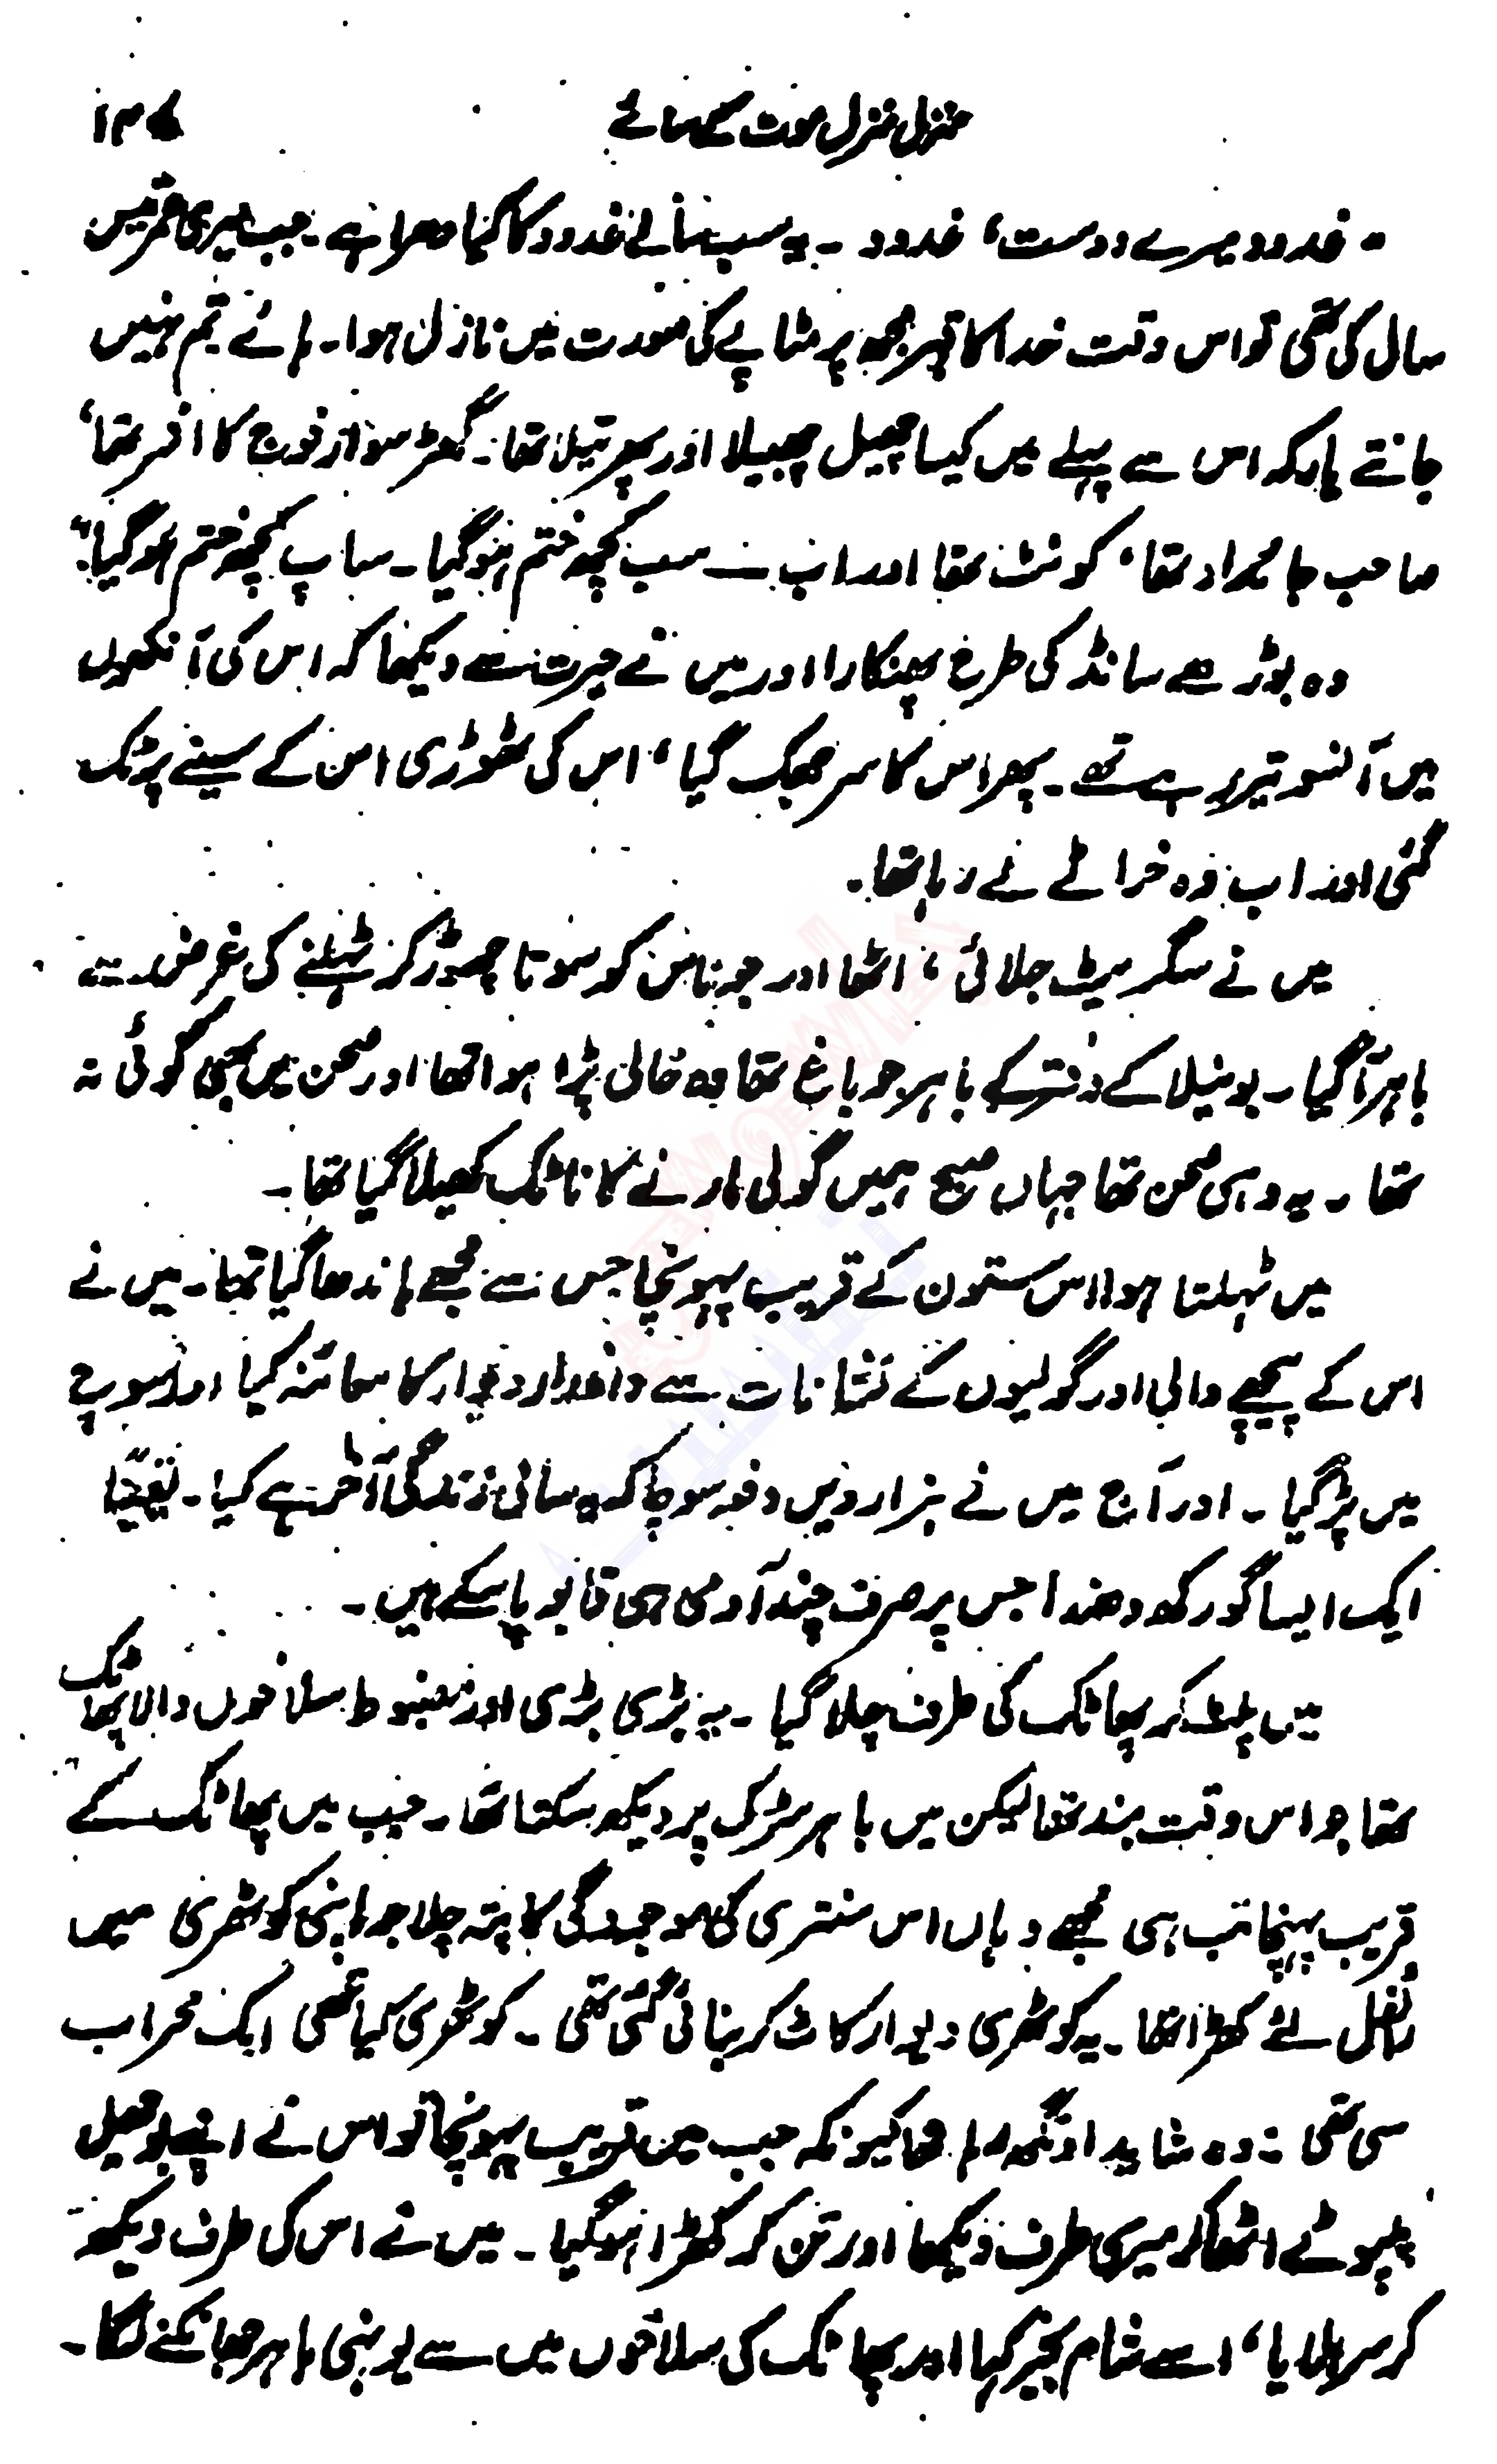 منزل منزل موت کے سائے ۱۳۷
"غدود میرے دوست، غدود ۔ یہ سب سالے غدود کا کیا دھرا ہے ۔ جب میری عمر تیس
سال کی تھی تو اس وقت خدا کا قہر مجھ پر مٹاپے کی صورت میں نازل ہوا ۔ ہائے تم نہیں
جانتے یار کہ اس سے پہلے میں کیسا چھیل چھبیلا اور پھرتیلا تھا ۔ گھڑ سوار فوج کا افسر تھا،
صاحب جائداد تھا، کونٹ تھا اور اب ــ سب کچھ ختم ہو گیا ۔ سا پ کچھ ختم ہو گیا"
وہ بوڑھے سانڈ کی طرح پھنکارا اور میں نے حیرت سے دیکھا کہ اس کی آنکھوں
میں آنسو تیر رہے تھے ۔ پھر اس کا سر جھک گیا، اس کی ٹھوڑی اس کے سینے پر ٹک
گئی اور اب وہ خراٹے لے رہا تھا ۔
میں نے سگریٹ جلائی، اٹھا اور جوناس کو سوتا چھوڑ کر ٹہلنے کی غرض سے
باہر آ گیا ۔ بونیلا کے دفتر کے باہر جو باغ تھا وہ خالی پڑا ہوا تھا اور صحن میں بھی کوئی نہ
تھا ۔ یہ وہی صحن تھا جہاں صبح ہمیں گولی مارنے کا ناٹک کھیلا گیا تھا ۔
میں ٹہلتا ہوا اس ستون کے قریب پہونچا جس سے مجھے باندھا گیا تھا ۔ میں نے
اس کے پیچھے والی اور گولیوں کے نشانات سے داغدار دیوار کا معائنہ کیا اور سوچ
میں پڑ گیا ۔ اور آج میں نے ہزارویں دفعہ سوچا کہ یہ سالی زندگی آخر ہے کیا ۔ یقیناً
ایک ایسا گورکھ دھندا جس پر صرف چند آدمی ہی قابو پا سکے ہیں ۔
میں پلٹ کر پھاٹک کی طرف چلا گیا ۔ یہ بڑی بڑی اور مضبوط سلاخوں والا پھاٹک
تھا جو اس وقت بند تھا لیکن میں باہر سڑک پر دیکھ سکتا تھا ۔ جب میں پھاٹک کے
قریب پہنچا تب ہی مجھے وہاں اس سنتری کی موجودگی کا پتہ چلا جو اپنی کوٹھری میں
رائفل لئے کھڑا تھا ۔ یہ کوٹھری دیوار کاٹ کر بنائی گئی تھی ۔ کوٹھری کیا تھی ایک محراب
سی تھی ۔ وہ شاید اونگھ رہا تھا کیونکہ جب میں قریب پہونچا تو اس نے اپنے بوجھل
پپوٹے اٹھا کر میری طرف دیکھا اور تن کر کھڑا ہو گیا ۔ میں نے اس کی طرف دیکھ
کر سر ہلایا، اسے شام بخیر کہا اور پھاٹک کی سلاخوں میں سے یونہی باہر جھانکنے لگا ۔